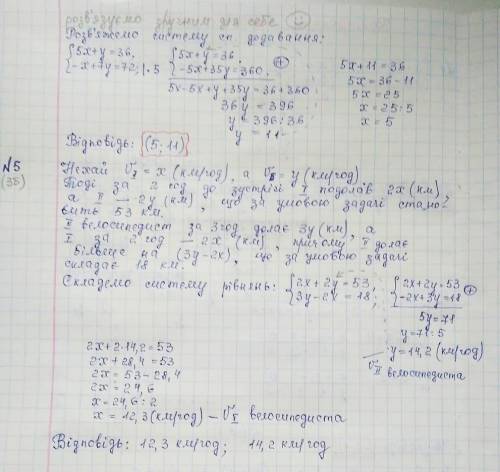 розв'язуємо зручним для себе
Розв'яжемо систему сп. додавання:
{5x+y=36,
-x+7y=72; |·5
{5x+y=36,
-5x+35y=360. ⊕
5x-5x+y+35y=36+360
36y=396
y=396:36
y=11
5x+11=36
5x=36-11
5x=25
x=25:5
x=5
Відповідь: (5; 11)
№5
(3б)
Нехай V_I=x (км/год), а V_II=y (км/год)
Тоді за 2 год до зустрічі I подолав 2x (км),
а II — 2y (км), що за умовою задачі стано-
вить 53 км.
II велосипедист за 3 год долає 3y (км), а
I за 2 год — 2x (км), причому II долає
більше на (3y-2x), що за умовою задачі
складає 18 км.
Складемо систему рівнянь: {2x+2y=53,
3y-2x=18;
{2x+2y=53
-2x+3y=18 ⊕
5y=71
y=71:5
y=14,2 (км/год)
V_II велосипедиста
2x+2·14,2=53
2x+28,4=53
2x=53-28,4
2x=24,6
x=24,6:2
x=12,3 (км/год) – V_I велосипедиста
Відповідь: 12,3 км/год; 14,2 км/год